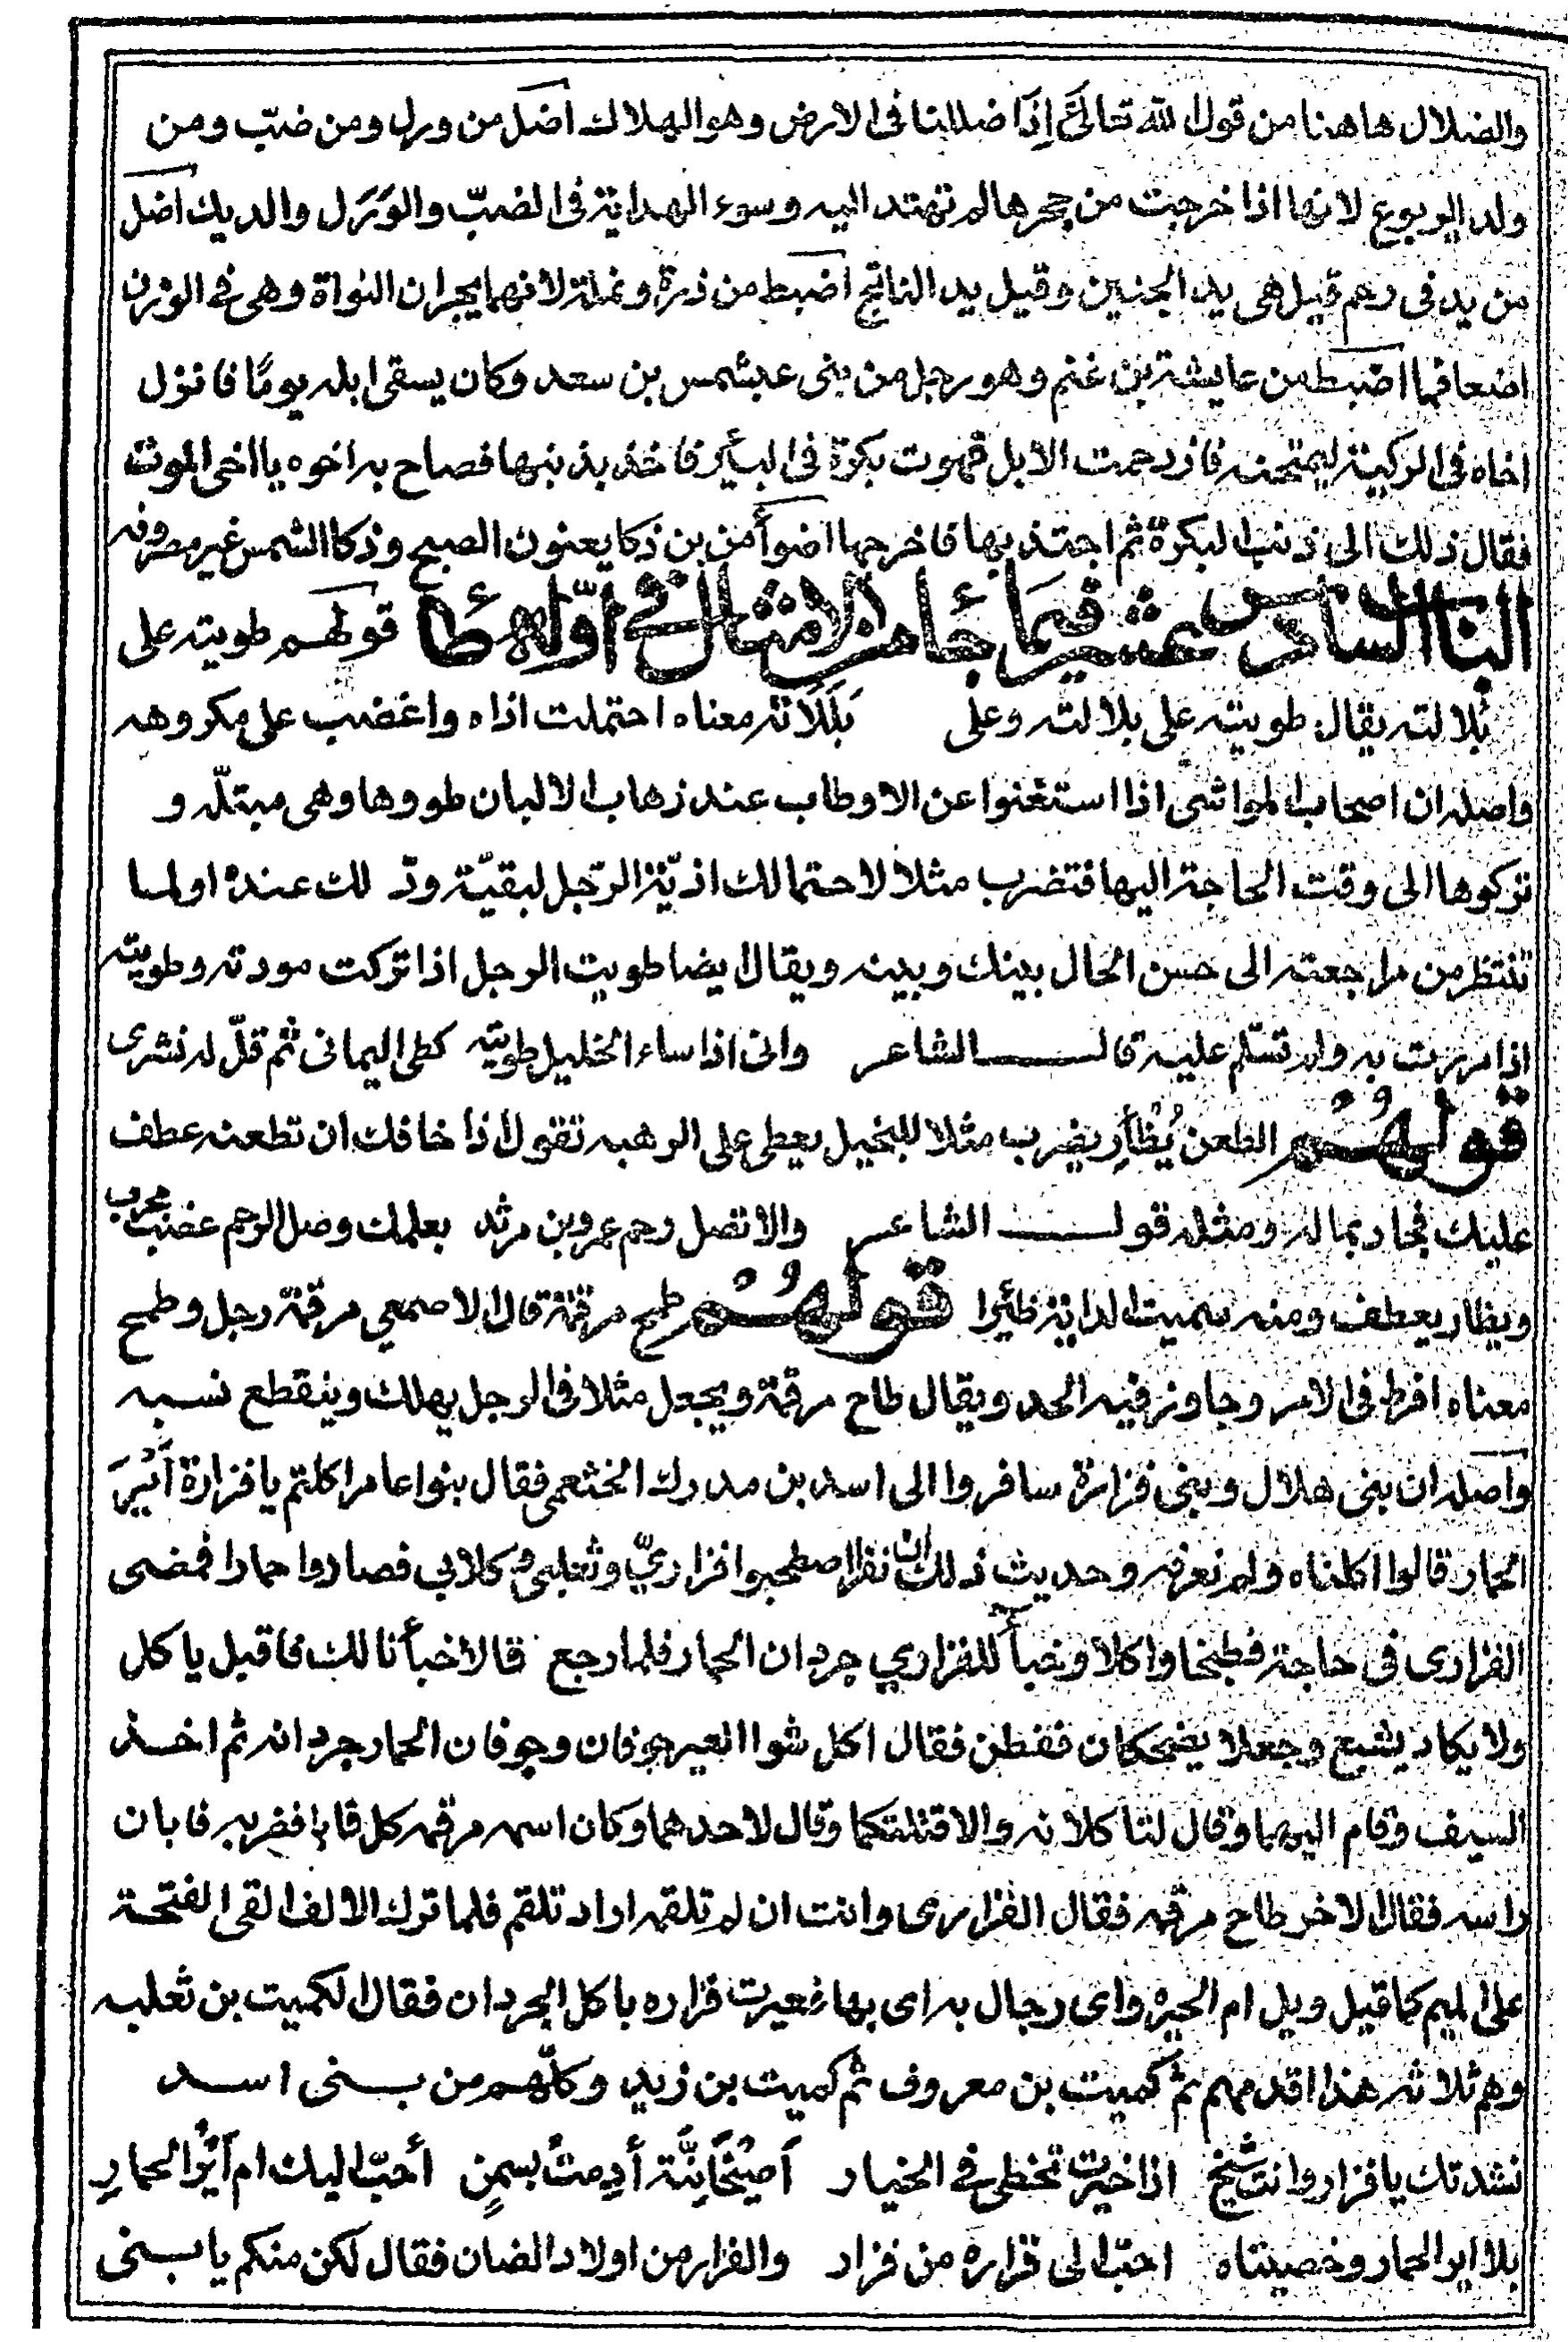 والضلال هاهنا من قول الله تعالى إذا ضللنا فى الارض وهو الهلاك اضل من ورل ومن ضبّ ومن
ولد اليربوع لانها اذا خرجت من جحرها لم تهتد اليه وسوء الهداية فى الضبّ والوَرَل والديك اضل
من يد فى رحم قيل هى يد الجنين وقيل يد الناتج اضبط من ذرة ونملة لانهما يجران النواة وهى فى الوزن
اضعافها اضبط من عايشة بن غنم وهو رجل من بنى عبشمس بن سعد وكان يسقى ابله يومًا فانزل
اخاه فى الركية ليمتحنه فازدحمت الابل فهوت بكرة فى البئر فاخذ بذنبها فصاح به اخوه يا اخى الموت
فقال ذلك الى ذنب البكرة ثم اجتذبها فاخرجها اضوأ من بن ذكا يعنون الصبح وذكا الشمس غير مصروفه
الباب السادس عشر فيما جاء من الامثال فى اوّله طاء قولهم طويته على
بُلالته يقال طويته على بلالته وعلى بَلَلَاته معناه احتملت اذاه واغضب على مكروهه
واصله ان اصحاب المواشى اذا استغنوا عن الاوطاب عند ذهاب الالبان طووها وهى مبتلّه و
تركوها الى وقت الحاجة اليها فتضرب مثلا لاحتمالك اذيّة الرّجل لبقيّة ودّ لك عنده اولما
تنتظر من مراجعته الى حسن الحال بينك وبينه ويقال ايضا طويت الرجل اذا تركت مودته وطويته
اذا مررت به ولم تسلّم عليه قال الشاعر وانى اذا ساء الخليل طويته كطى اليمانى ثم قلّ له نشرى
قولهُم الطعن يُظأر يضرب مثلا للبخيل يعطى على الرهبه تقول اذا خافك ان تطعنه عطف
عليك فجاد بماله ومثله قول الشاعر والا تصل رحم عمرو بن مرثد يعلمك وصل الرحم عضب مجرب
ويظار يعطف ومنه سميت الداية ظئرا قولهُم طمح مرقمة قال الاصمعي مرقمة رجل وطمح
معناه افرط فى الامر وجاوز فيه الحد ويقال طاح مرقمة ويجعل مثلا فى الرجل يهلك وينقطع نسبه
واصله ان بنى هلال وبنى فزارة سافروا الى اسد بن مدرك الخثعمى فقال بنوا عامر اكلتم يا فزارة أَيْرَ
الحمار قالوا اكلناه ولم نعرفه وحديث ذلك ان نفرا اصطحبوا فزاريّ وثعلبى وكلابي فصادوا حمارا فمضى
الفزارى فى حاجة فطبخا واكلا وخبأ للفزاري جردان الحمار فلما رجع قالا خبأنا لك فاقبل ياكل
ولا يكاد يشبع وجعلا يضحكان ففطن فقال اكل شوا العير جوفان وجوفان الحمار جردانه ثم اخذ
السيف وقام اليهما وقال لتاكلانه والا قتلتكما وقال لاحدهما وكان اسمه مرقمه كل فابا فضربه فابان
راسه فقال الاخر طاح مرقمه فقال الفزارى وانت ان لم تلقمه اراد تلقم فلما ترك الالف القى الفتحة
على الميم كما قيل ويل ام الحيره واى رجال به اى بها فعيرت فزاره باكل الجردان فقال الكميت بن ثعلبه
وهم ثلاثه هذا اقدمهم ثم كميت بن معروف ثم كميت بن زيد وكلّهم من بنى اسد
نشدتك يا فزار وانت شيخ اذا خيرت تخطى فى الخيار أصيحَانِيَّة أدِمت بسمنٍ أحبّ اليك ام أَيْرُ الحمارِ
بلا اير الحمار وخصيتاه احبّ الى فزاره من فزار والفزار من اولاد الضان فقال لكن منكم يا بنى